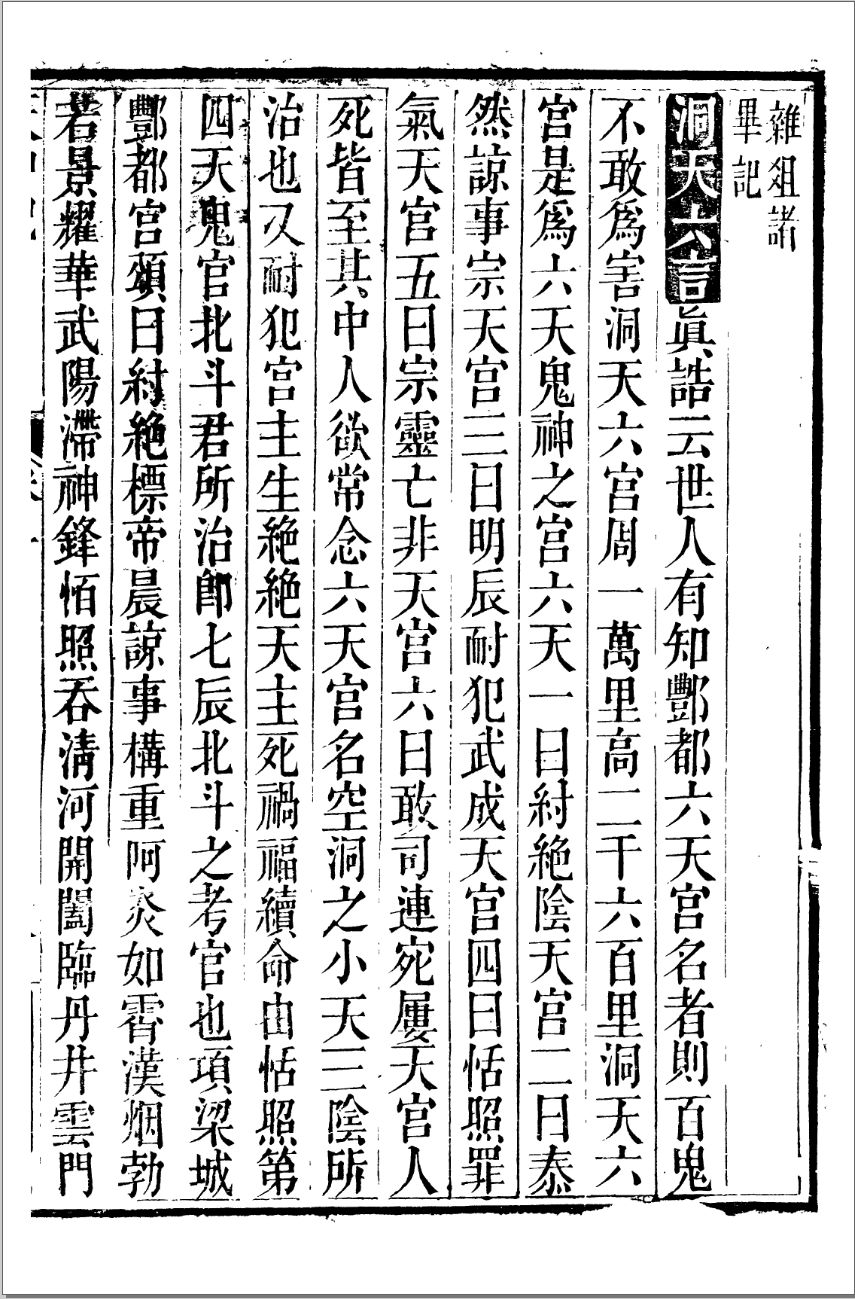 雜俎諾
畢記
洞天六宫眞誥云世人有知酆都六天宫名者則百鬼
不敢爲害洞天六宫周一萬里高二千六百里洞天六
宫是爲六天鬼神之宫六天一曰紂絶陰天宫二曰泰
然諒事宗天宫三曰明辰耐犯武成天宫四曰恬照罪
氣天宫五曰宗靈七非天宫六曰敢司連宛屢天宫人
死皆至其中人欲常念六天宫名空洞之小天三陰所
治也又耐犯宫主生絶絶天主死禍福續命由恬照第
四天鬼官北斗君所治郎七辰北斗之考官也項梁城
酆都宫頌曰紂絶標帝晨諒事構重阿炎如霄漢烟勃
若景耀華武陽滯神鋒恬照吞清河開闔臨丹井雲門